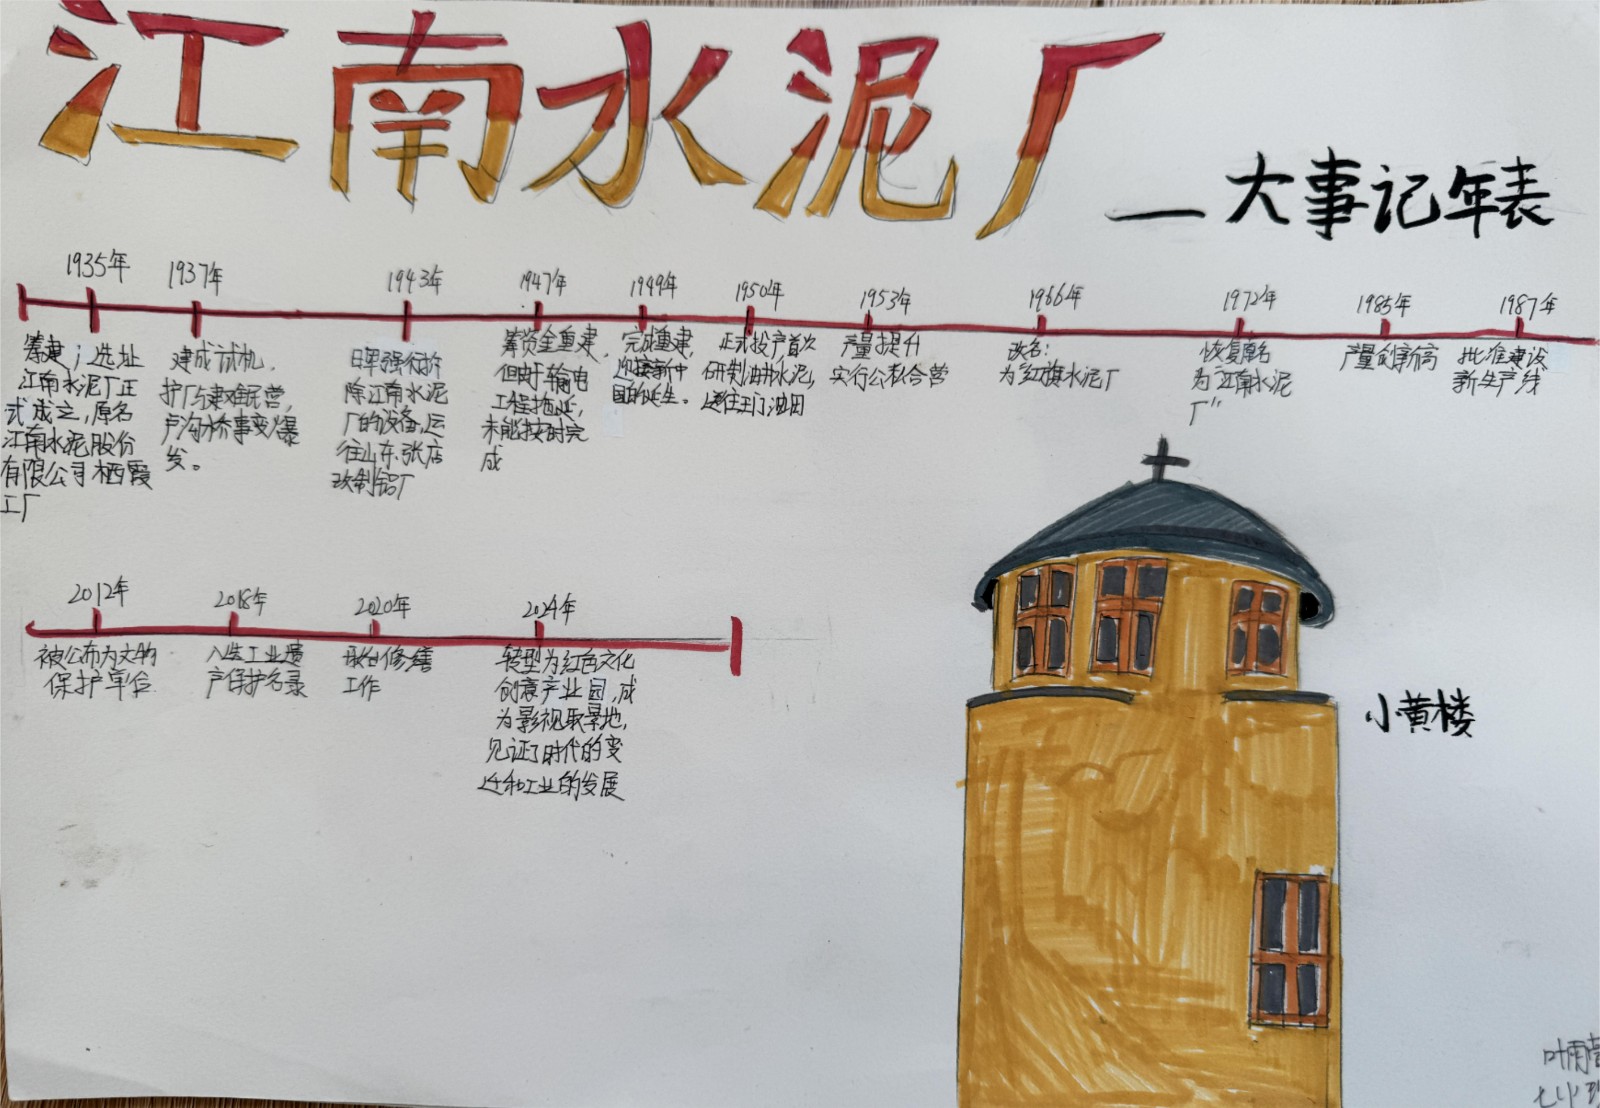 江南水泥厂
—大事记年表
1935年
筹建,选址
江南水泥厂正
式成立,原名
江南水泥股份
有限公司栖霞
工厂
1937年
建成试机,
护厂与建难民营,
卢沟桥事变爆
发。
1943年
日军强行拆
除江南水泥
厂的设备,运
往山东张店
改制铝厂
1947年
筹资金重建,
但由于输电
工程拖延,
未能按时完
成
1949年
完成重建,
迎接新中
国的诞生。
1950年
正式投产首次
研制油井水泥,
送往玉门油田
1953年
产量提升
实行公私合营
1966年
改名:
为"红旗水泥厂
1972年
恢复原名
为"江南水泥
厂"
1985年
产量创新高
1987年
批准建设
新生产线
2012年
被公布为文物
保护单位
2018年
入选工业遗
产保护名录
2020年
修缮
工作
2024年
转型为红色文化
创意产业园,成
为影视取景地,
见证了时代的变
迁和工业的发展
小黄楼
叶雨